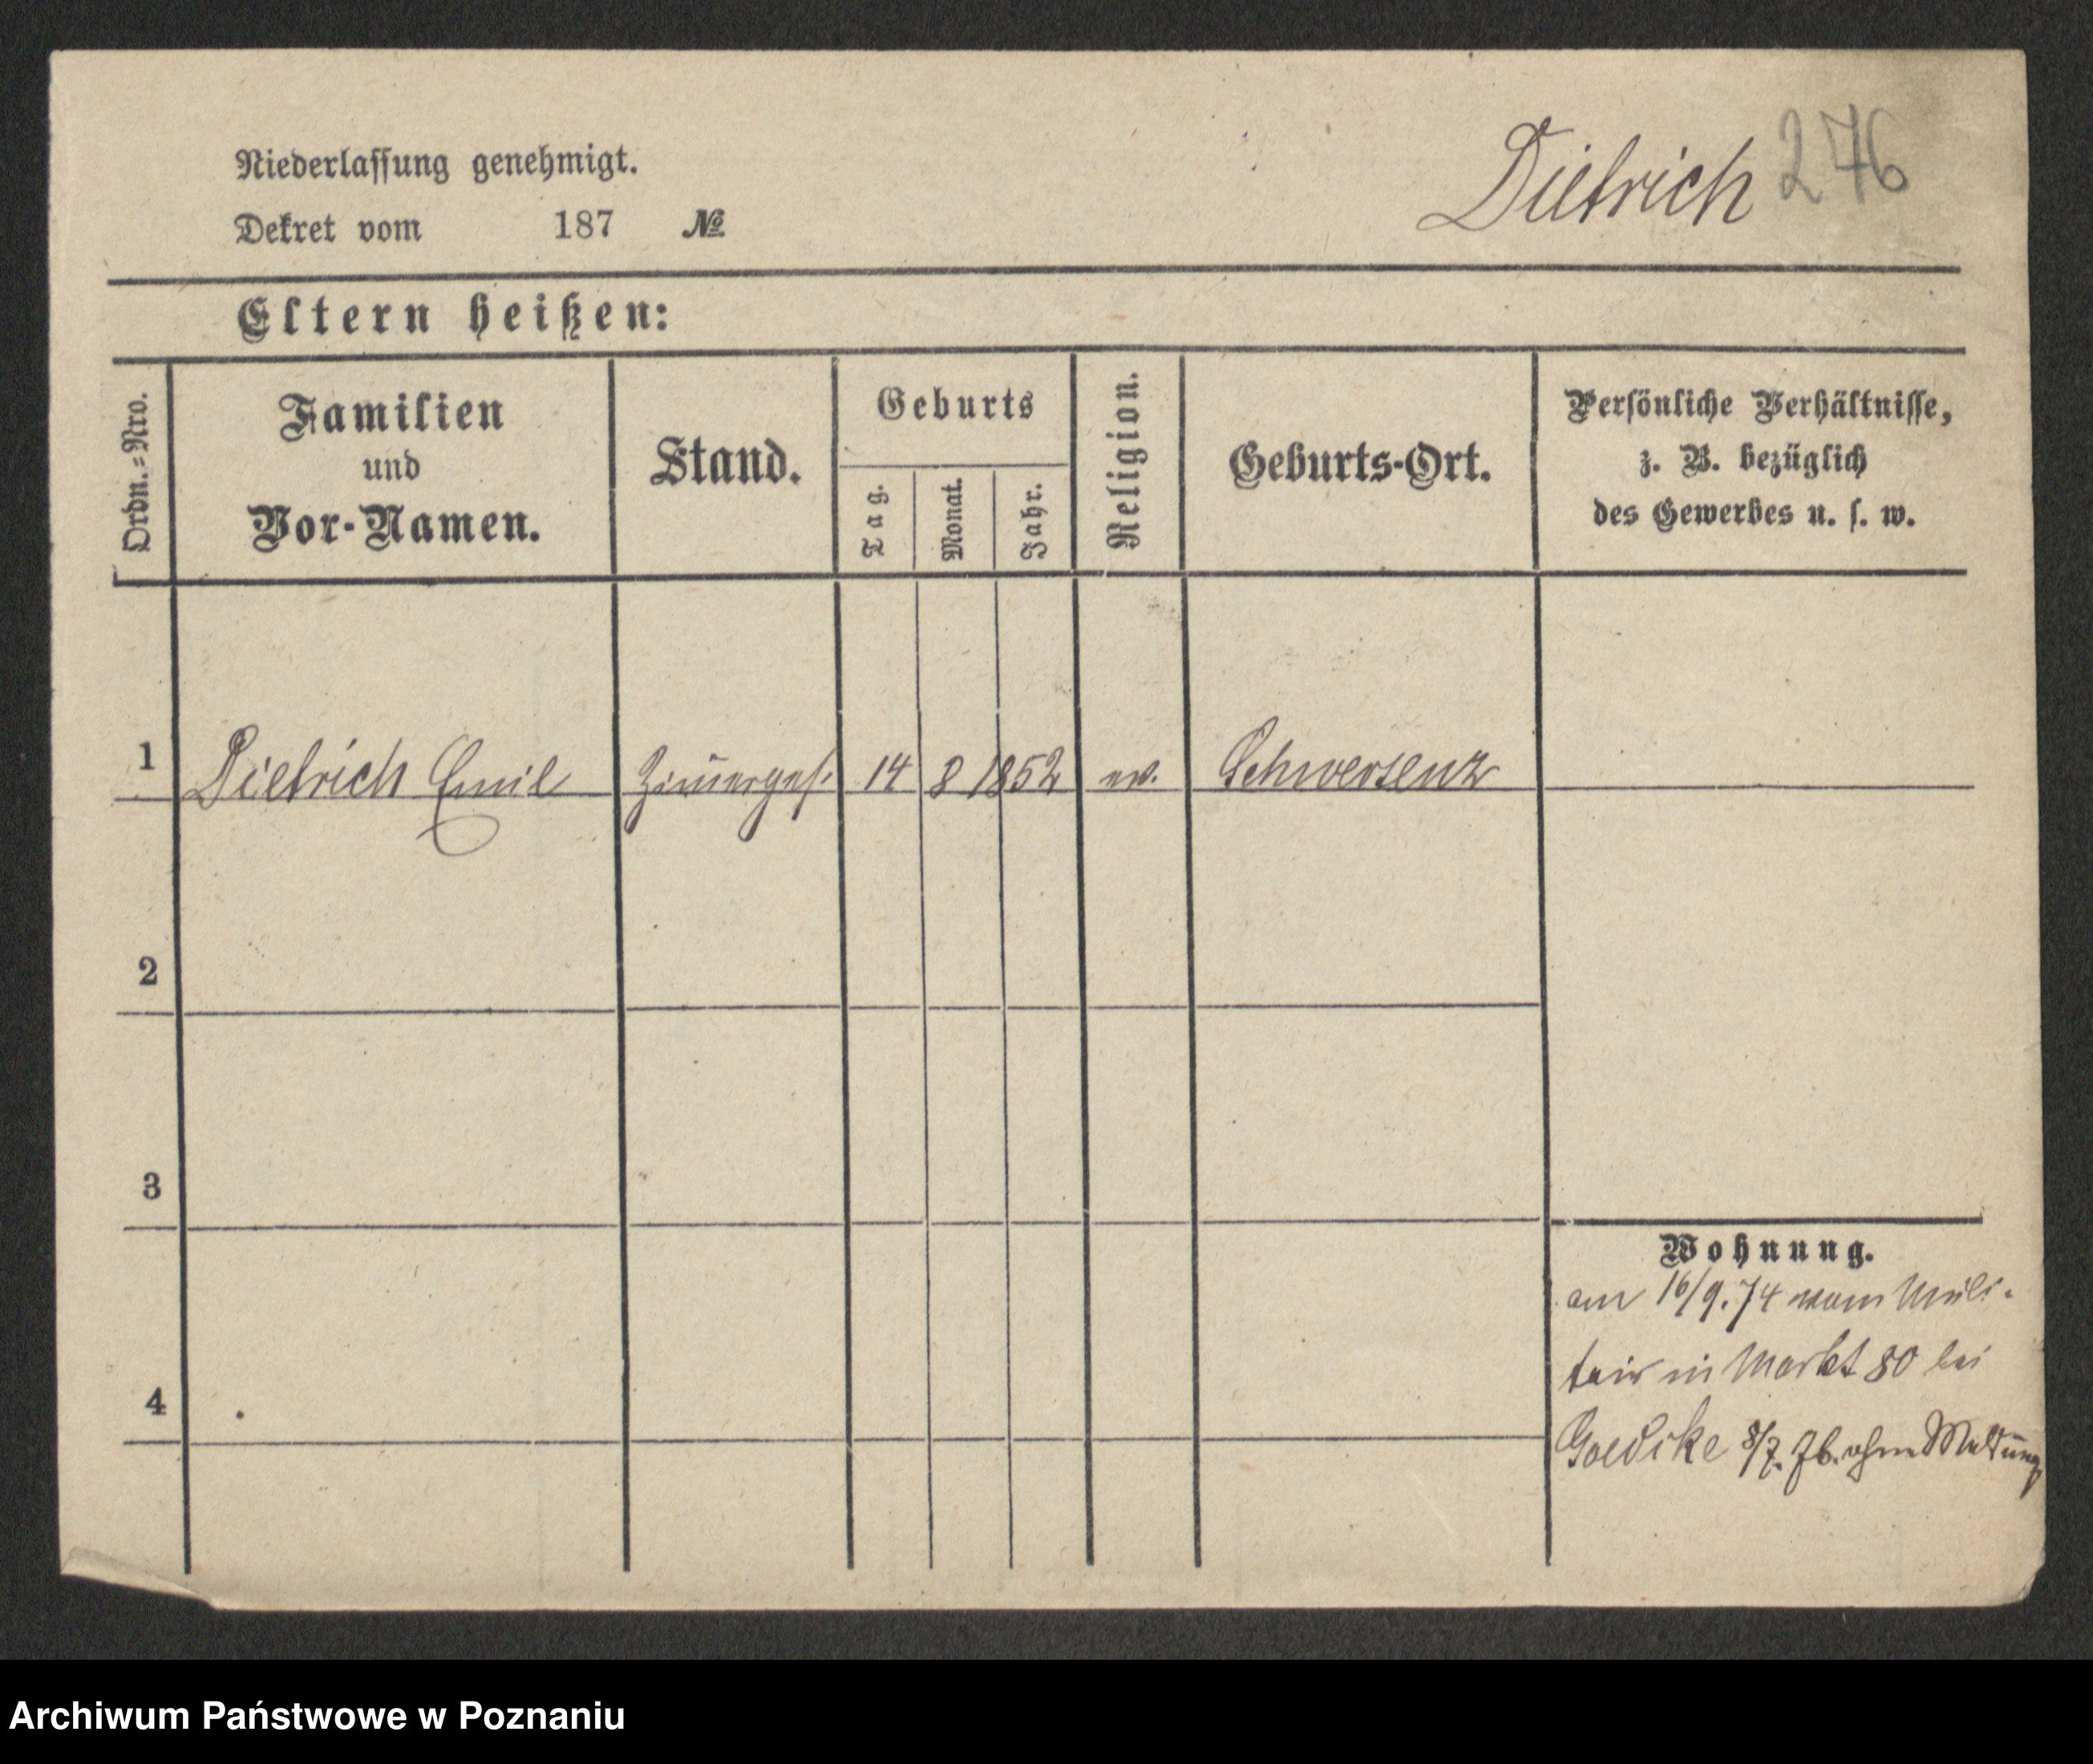 Niederlassung genehmigt.
Dekret vom 187 №
Dietrich 276
Eltern heißen:
Ordn.=Nro.
Familien
und
Vor-Namen.
Stand.
Geburts
Tag.
Monat.
Jahr.
Religion.
Geburts-Ort.
Persönliche Verhältnisse,
z. B. bezüglich
des Gewerbes u. s. w.
1 Dietrich Emil Zim̄erges. 14 8 1852 ev. Schwersenz
2
3
4
Wohnung.
am 16/9. 74 vom Mili-
tair in Markt 80 bei
Goedike 8/7. 76. ohne Meldung
Archiwum Państwowe w Poznaniu